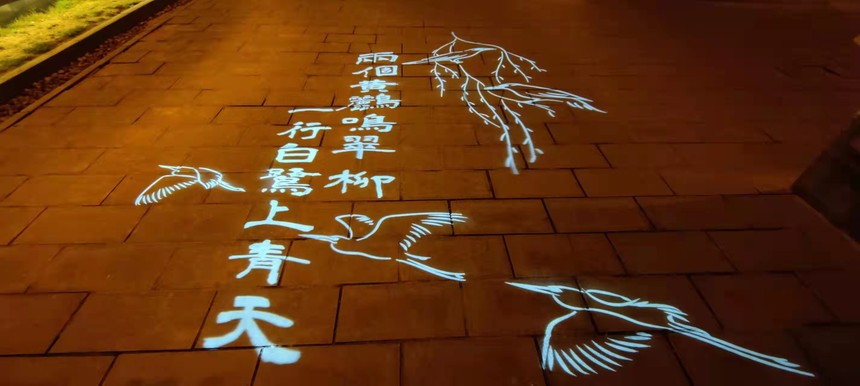 兩個黃鸝鳴翠柳
一行白鷺上青天